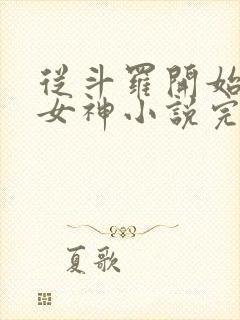 從斗羅開始
女神小說完
夏歌